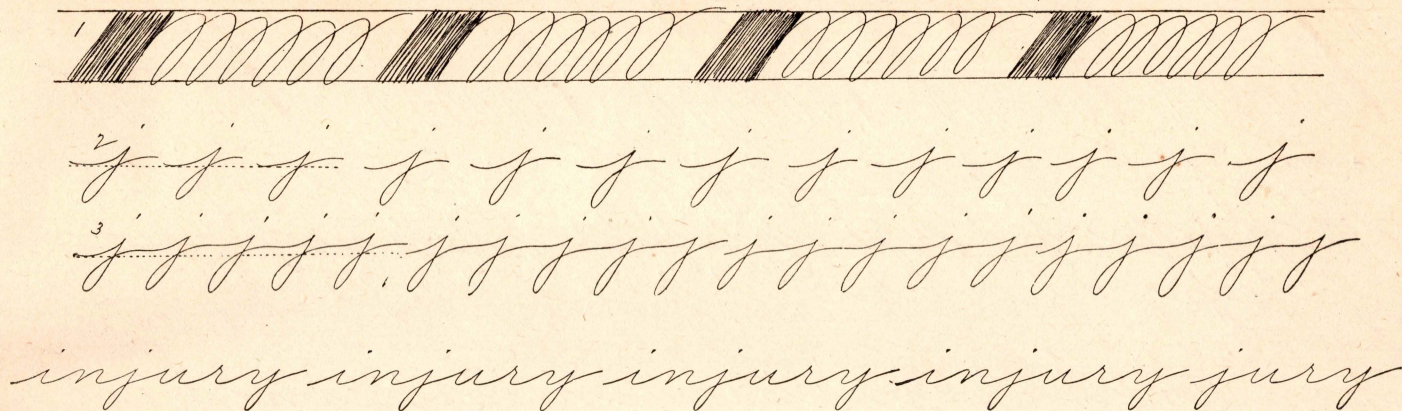 1
2 j j j j j j j j j j j j j
3 jjjjj jjjjj jjjjj jjjjj
injury injury injury injury jury